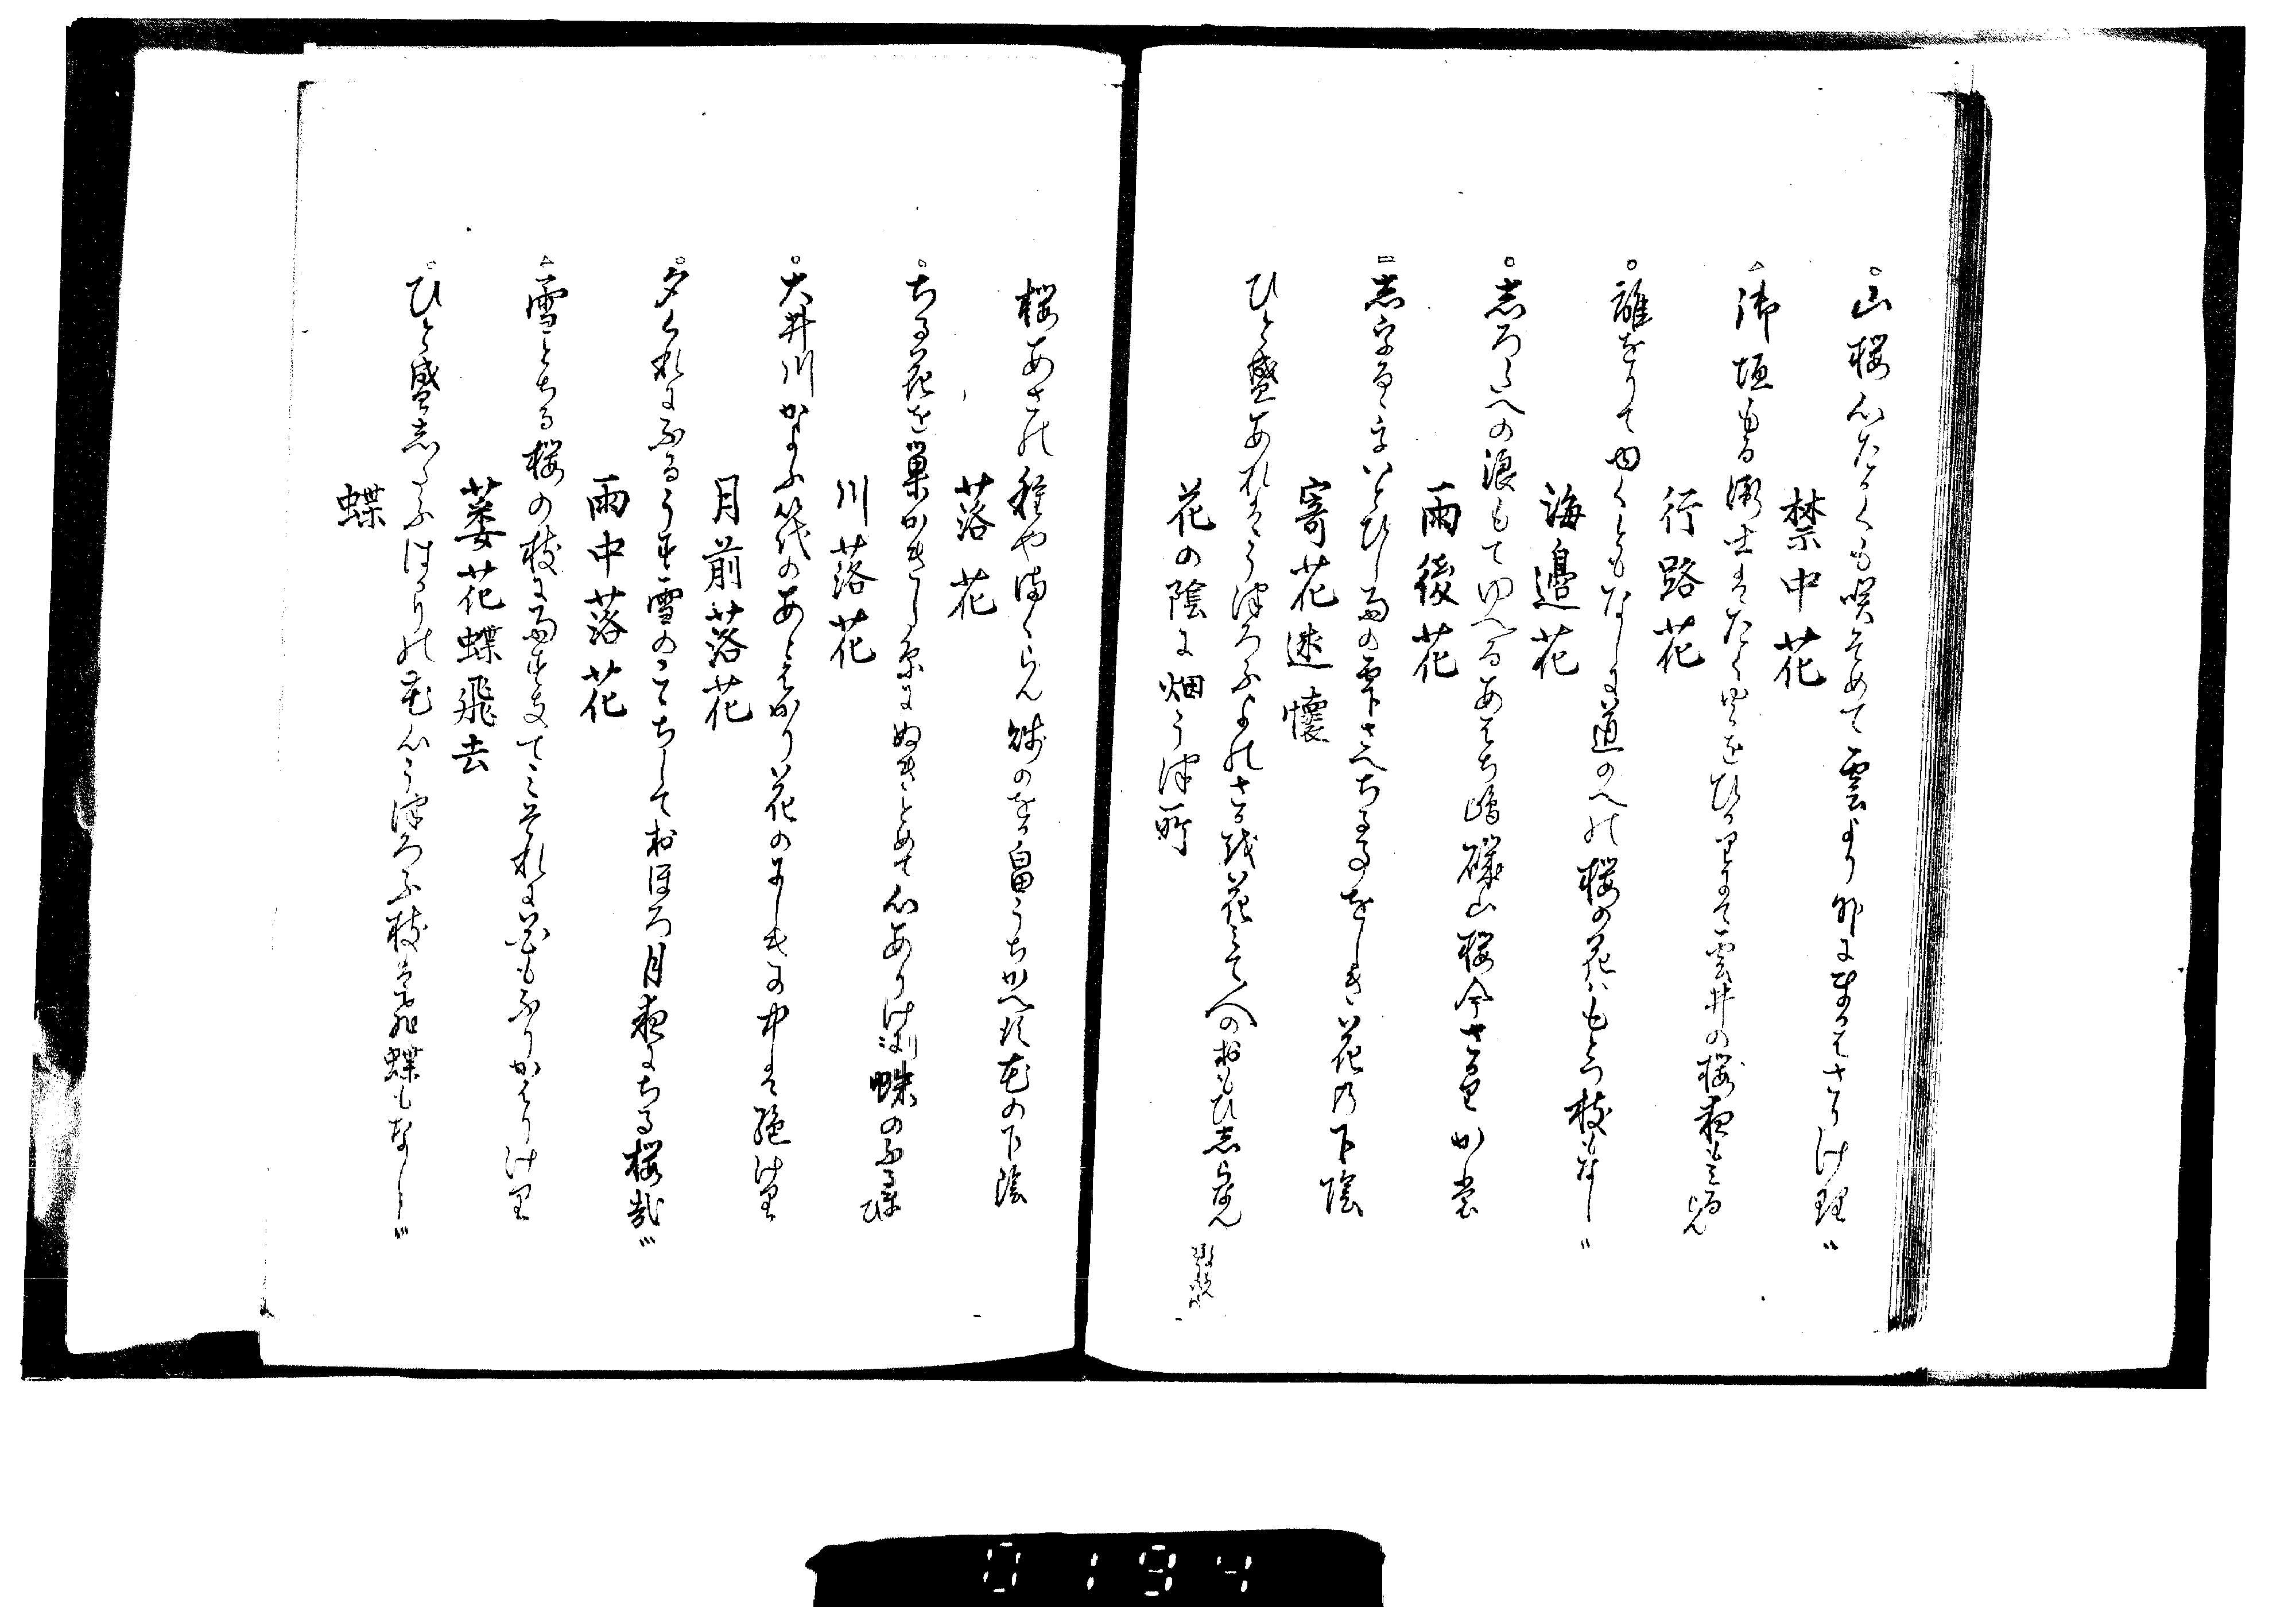 山桜心たかくも咲そめて雲より外にまかはさりけ理
禁中花
御垣もる衛士はたく火をひかりにて雲井の桜夜もみるらん
行路花
誰をりてゆくともなしに道のへの桜の花はもとつ枝もなし
海邉花
志ろたへの浪もてゆへるあはち嶋磯山桜今さかり
雨後花
いとひし雨の雫さへちるはをしき花乃下陰
寄花述懐
ひと盛あれはうつろふよのさを花にみて人のおもひ志らなん
花の陰に畑うつ所
桜あさの種やまくらん賤のをか畠うちかへす花の下陰
落花
ちる花を巣かきし糸にぬきとめて心ありける蛛のふるまひ
川落花
大井川かよふ筏のあとはかり花のにしきの中は絶けり
月前落花
夕くれにふるうす雪のこゝちしておほろ月夜にちる桜哉
雨中落花
雪とちる桜の枝に雨すきてみそれに色もふりかはりけり
萎花蝶飛去
ひと盛志たふはかりの花心うつろふ枝は蝶もなし
蝶
0194